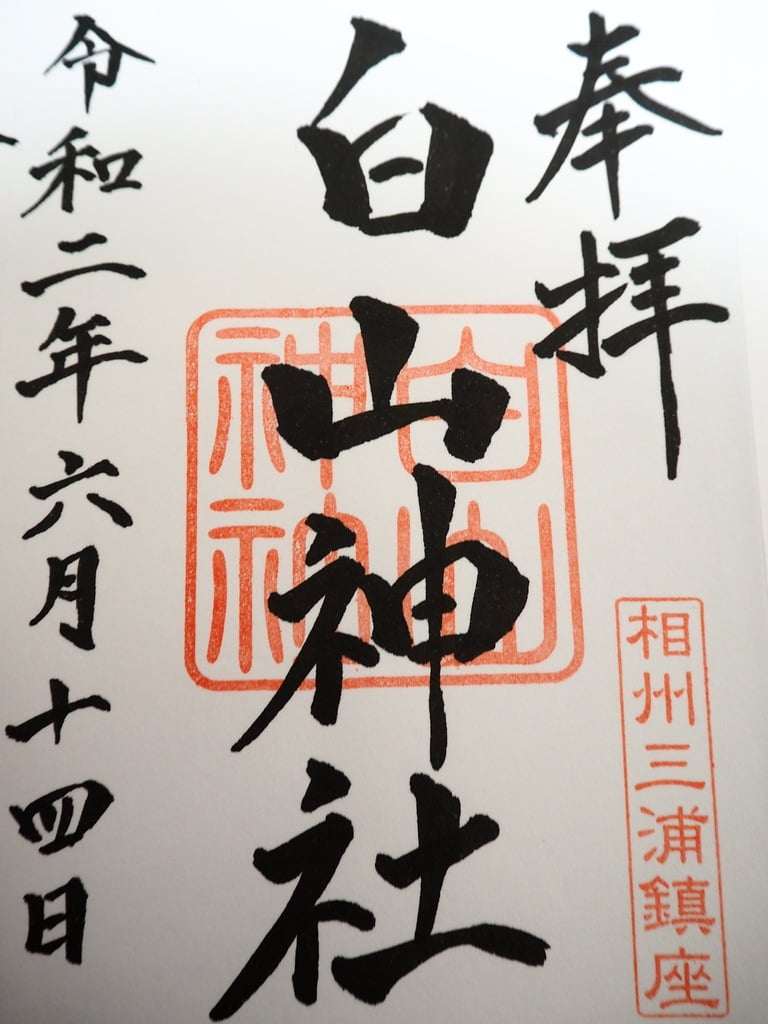 奉拝
白山神社
令和二年六月十四日
白山神社
相州三浦鎮座